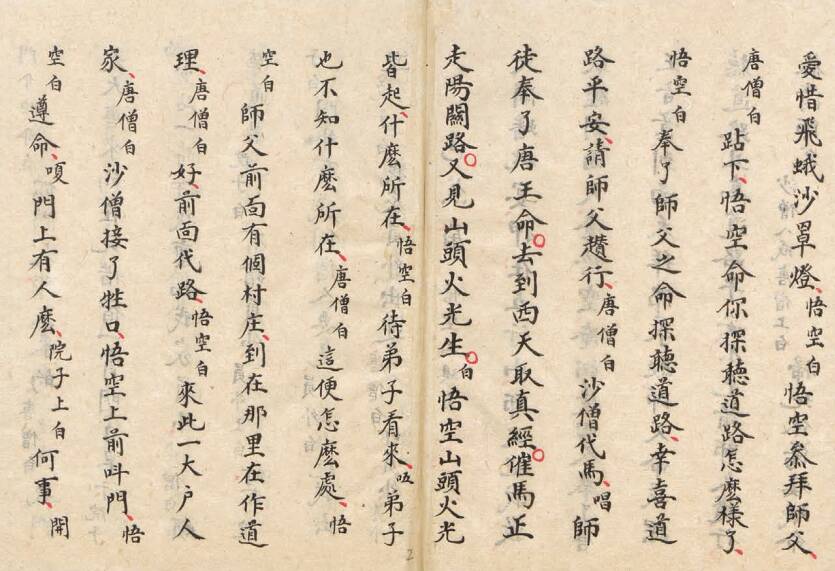 愛惜飛蛾沙罩燈、悟空白悟空叅拜師父、
唐僧白跕下、悟空命你探聽道路怎麼樣了、
悟空白奉了師父之命探聽道路、幸喜道
路平安、請師父趲行、唐僧白沙僧代馬、唱師
徒奉了唐王命○去到西天取真經○催馬正
走陽關路○又見山頭火光生○白悟空山頭火光
皆起、什麼所在、悟空白待弟子看來、弟子
也不知什麼所在、唐僧白這便怎麼處、悟
空白師父前面有個村庄、到在那里在作道
理、唐僧白好、前面代路、悟空白來此一大户人
家、唐僧白沙僧接了牲口、悟空上前叫門、悟
空白遵命、嗄門上有人麼、院子上白何事、開
2